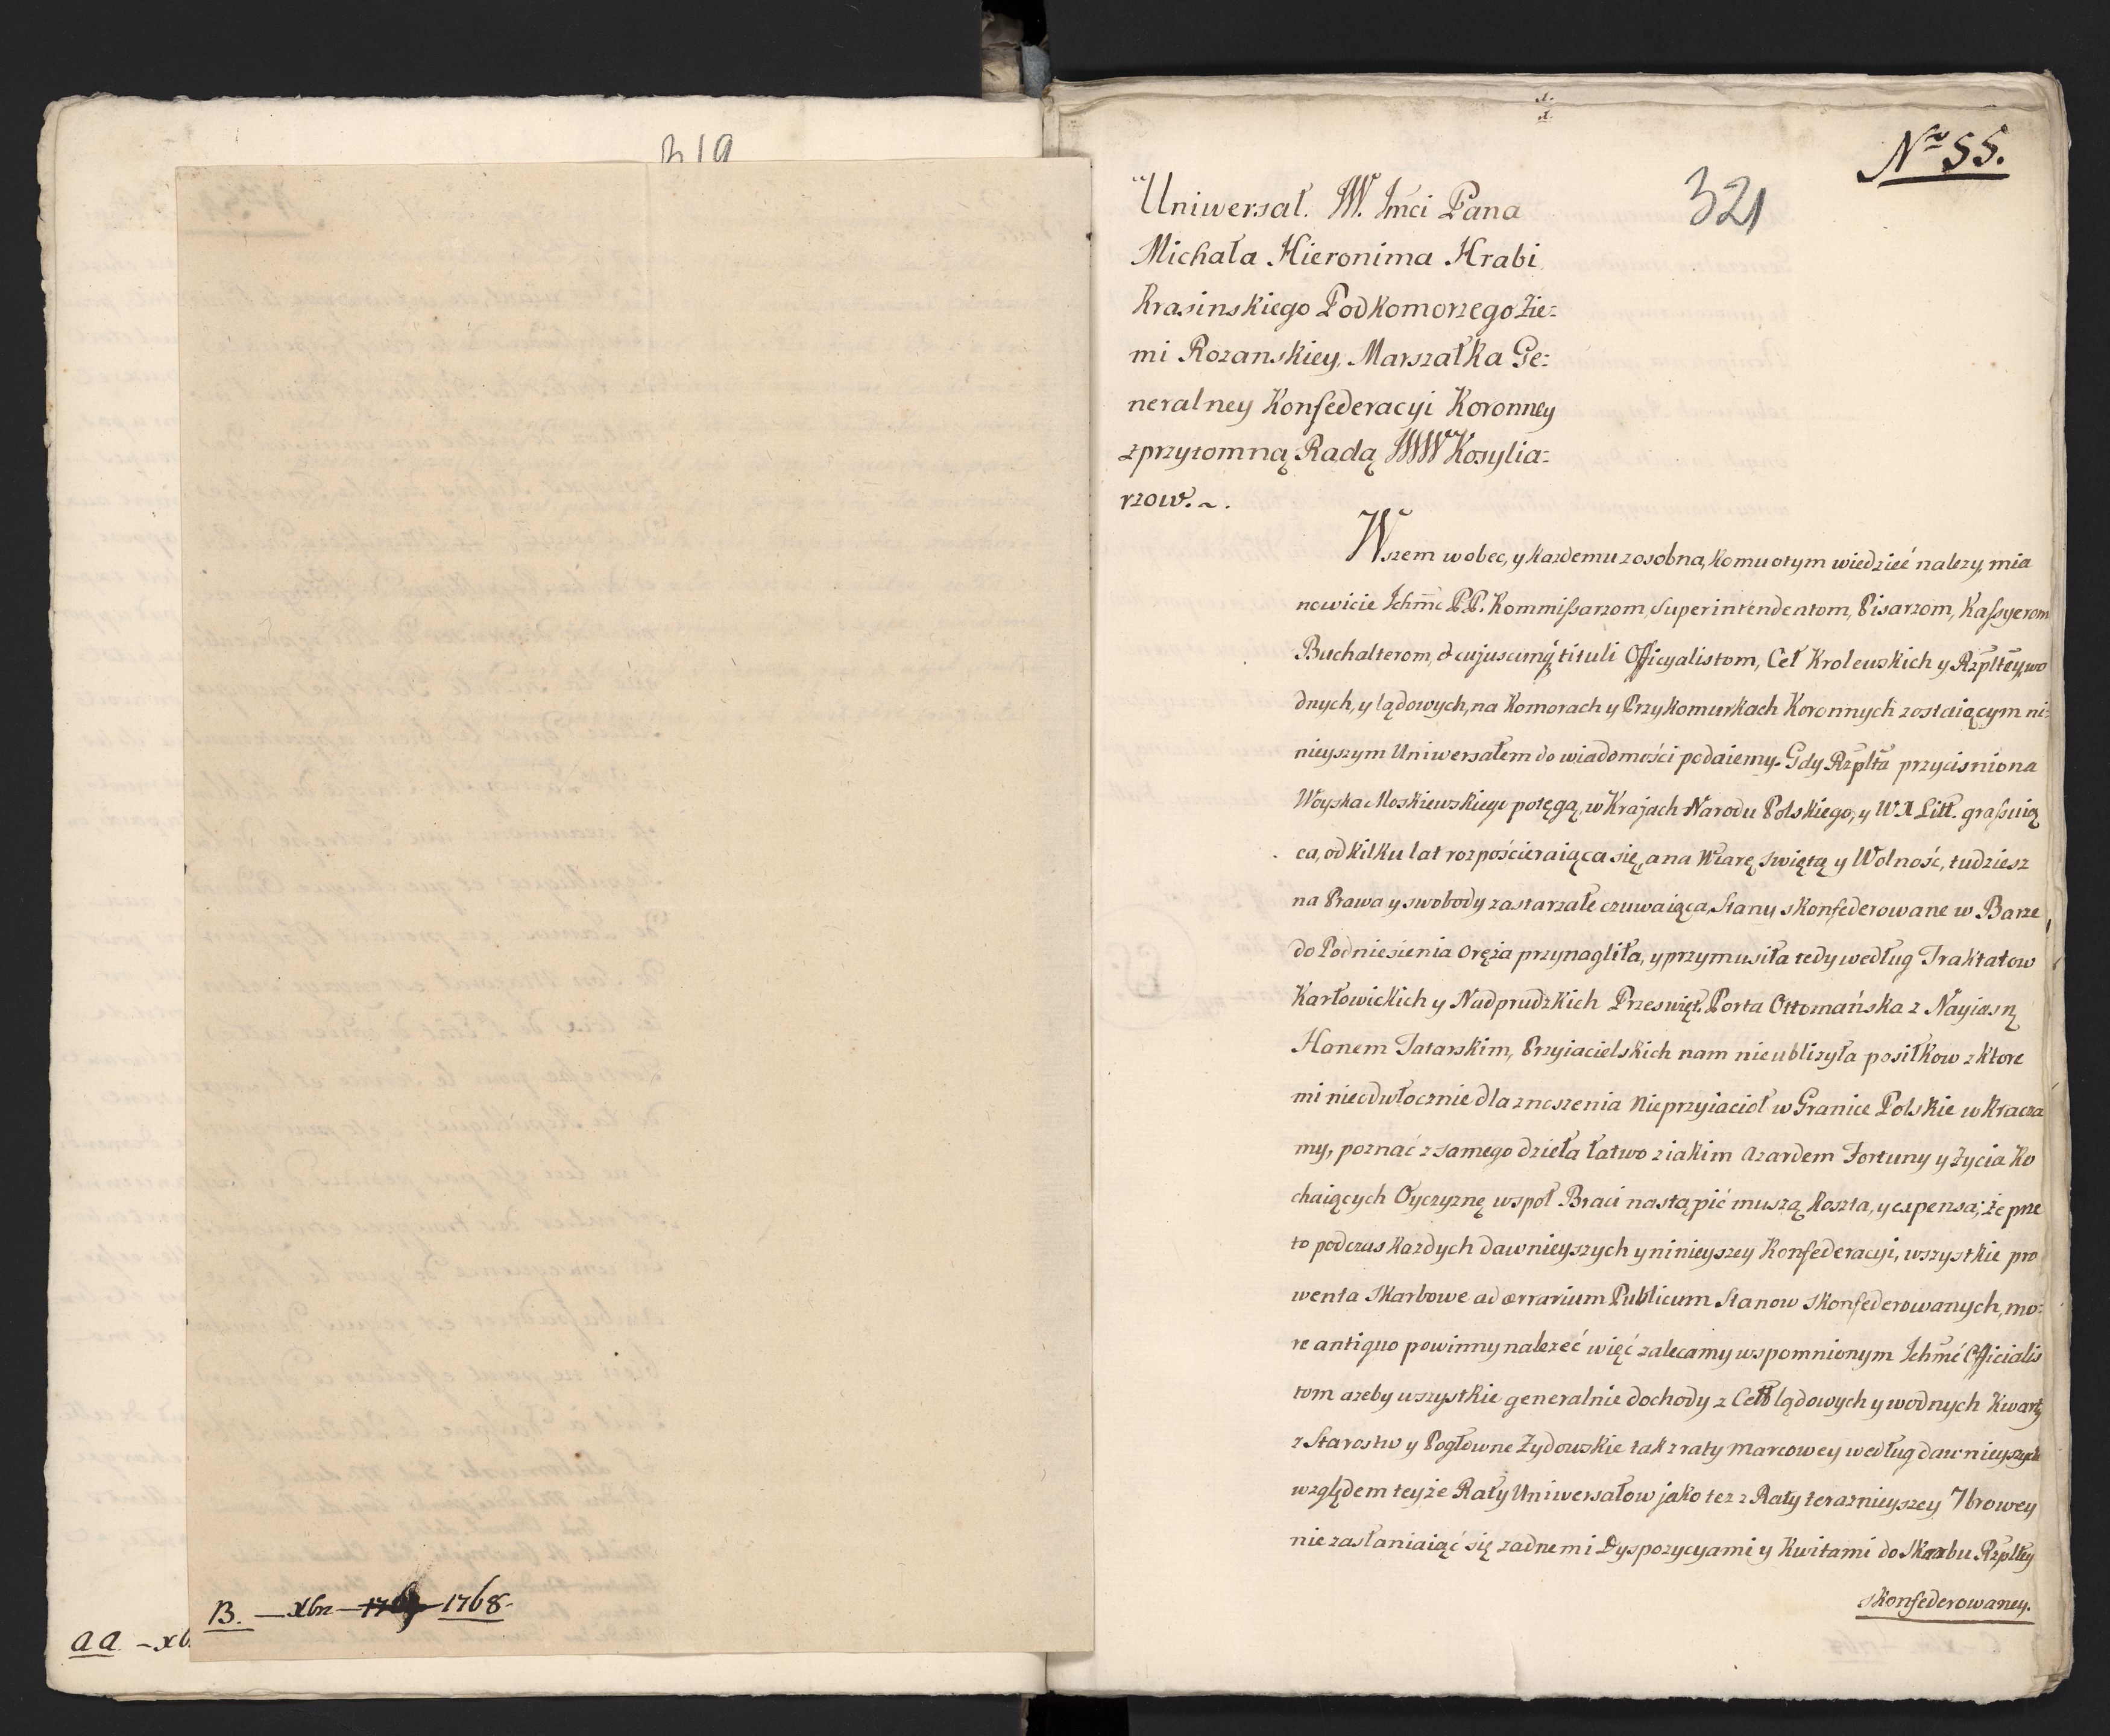 319
B. — Xbr — 1769 1768.
aa — xb
Nro 55.
321
Uniwersał. JW. Jmci Pana
Michała Hieronima Hrabi
Krasinskiego Podkomorzego Zie=
mi Rozanskiey, Marszałka Ge=
neralney Konfederacyi Koronney
z przytomną Radą JWW Kosylia=
rzow. ~.
Wszem wobec, y kazdemu zosobna, komu otym wiedzieć nalezy, mia
nowicie Ichmc P.P. Kommissarzom, Superintendentom, Pisarzom, Kassyerom
Buchalterom, & cujuscunq tituli Officyalistom, Ceł Krolewskich y Rzpltey, wo
dnych, y lądowych, na Komorach y Przykomurkach Koronnych zostaiącym ni=
nieyszym Uniwersałem do wiadomości podaiemy. Gdy Rzplta przyciśniona
Woyska Moskiewskiego potęgą, w Krajach Narodu Polskiego, y W. X Litt. grassuią
ca, od kilku lat rozpościeraiąca się, a na Wiarę swiętą y Wolność, tudziesz
na Prawa y swobody zastarzałe czuwaiąca, Stany skonfederowane w Barze
do Podniesienia Oręża przynagliła, y przymusiła tedy według Traktatow
Karłowickich y Nadprudzkich Przeswięt. Porta Ottomańska z Nayiasn
Hanem Tatarskim, Przyiacielskich nam nieubliżyła posiłkow z ktore
mi nieodwłocznie dla znoszenia Nieprzyiacioł w Granice Polskie wkracza
my, poznać z samego dzieła łatwo z iakim azardem Fortuny y Zycia Ko
chaiących Oyczyznę wspoł Braci nastąpić muszą koszta, y expensa; że prze
to podczas kazdych dawnieyszych y ninieyszey Konfederacyi, wszystkie pro
wenta Skarbowe ad ærrarium Publicum Stanow Skonfederowanych, mo=
re antiquo powinny należeć więć zalecamy wspomnionym Ichmć Officialis
tom azeby wszystkie generalnie dochody z Cełł lądowych y wodnych Kwarty
z Starostw y Pogłowne Zydowskie tak z raty marcowey według dawnieyszych
względem teyże Raty Uniwersałow jako tez z Raty terazniuyszey 7browey
nie zasłaniaiąć się zadnemi Dyspozycyami y Kwitami do Skarbu Rzpltey
Skonfederowaney.